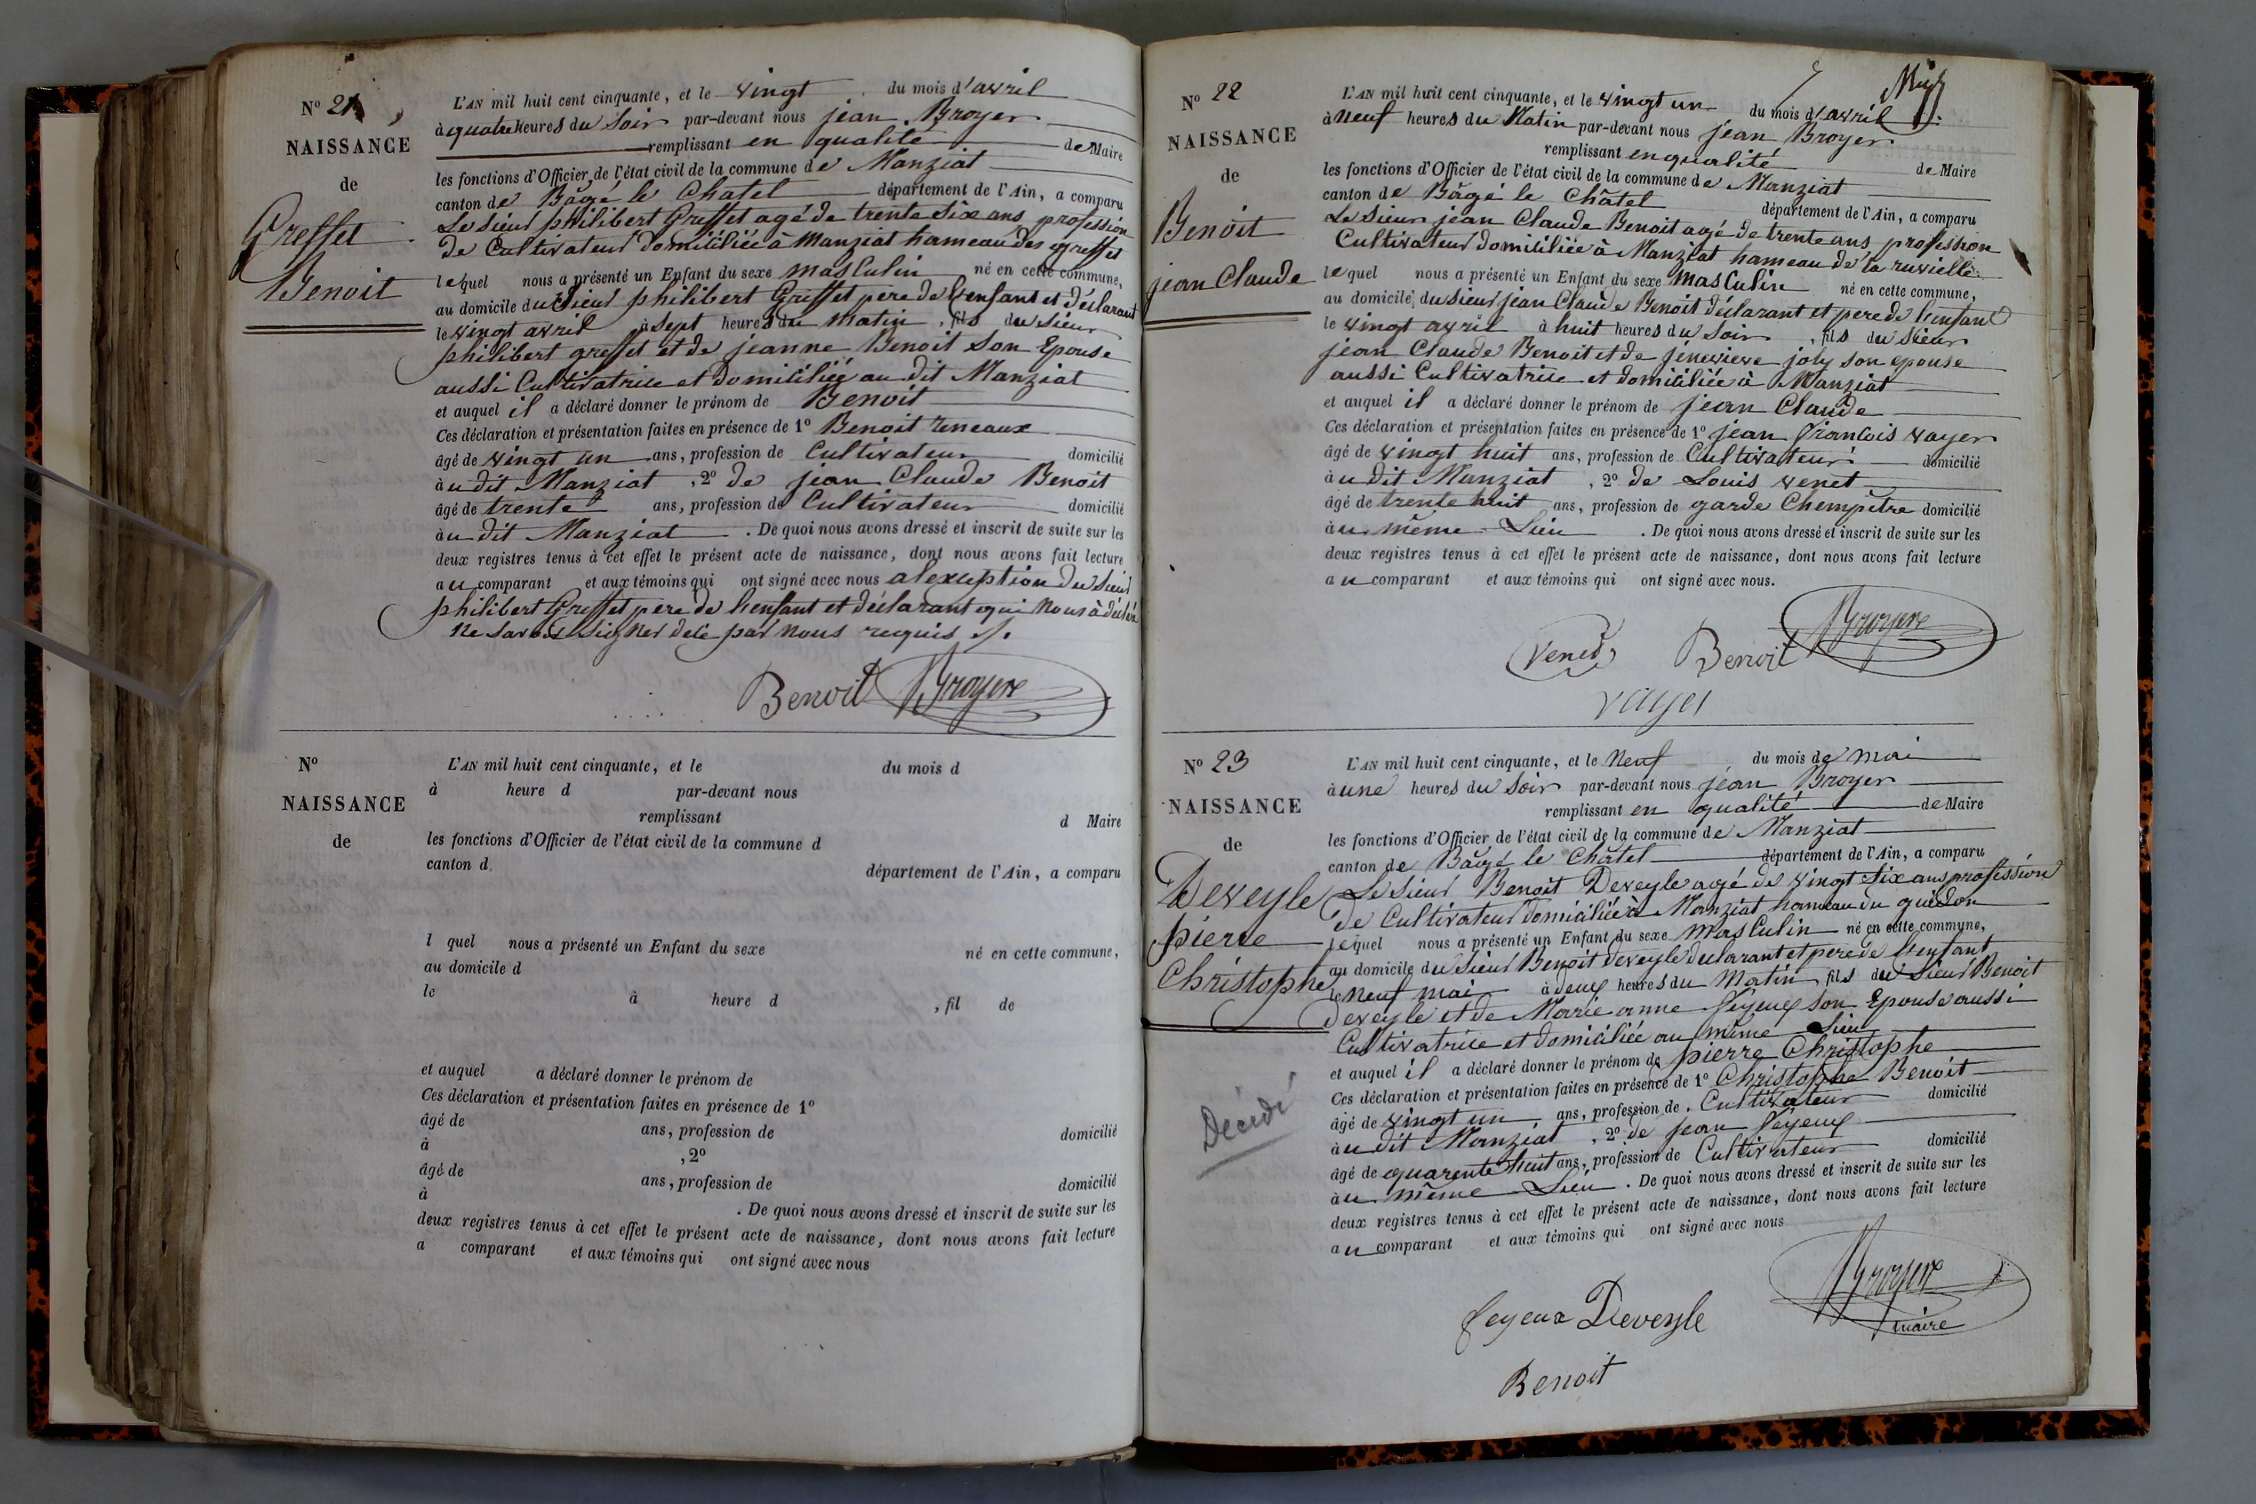 N° 21
NAISSANCE
de
Greffet
Benoit
L'AN mil huit cent cinquante, et le vingt du mois d'avril
à quatre heures du Soir par-devant nous jean Broyer
remplissant en qualité de Maire
les fonctions d'Officier de l'état civil de la commune de Manziat
canton de Bâgé le Chatel département de l'Ain, a comparu
Le Sieur philibert Greffet agé de trente Six ans profession
de Cultivateur domiciliée à Manziat hameau des greffet
lequel nous a présenté un Enfant du sexe masculin né en cette commune,
au domicile du Sieur philibert Greffet pere de l'enfant et déclarant
le vingt avril à Sept heures du matin, fils du Sieur
philibert greffet et de jeanne Benoit son Epouse
aussi Cultivatrice et domiciliée au dit Manziat
et auquel il a déclaré donner le prénom de Benoit
Ces déclaration et présentation faites en présence de 1° Benoit reneaux
âgé de vingt un ans, profession de Cultivateur domicilié
à u dit Manziat, 2° de jean Claude Benoit
âgé de trente ans, profession de Cultivateur domicilié
à u dit Manziat. De quoi nous avons dressé et inscrit de suite sur les
deux registres tenus à cet effet le présent acte de naissance, dont nous avons fait lecture
au comparant et aux témoins qui ont signé avec nous alexception du Sieur
philibert Greffet pere de lenfant et déclarant qui nous à déclaré
ne Savoir Signer de ce par nous requis ./.
Benoit Broyer
N°
NAISSANCE
de
L'AN mil huit cent cinquante, et le du mois d
à heure d par-devant nous
remplissant d Maire
les fonctions d'Officier de l'état civil de la commune d
canton d département de l'Ain, a comparu
l quel nous a présenté un Enfant du sexe né en cette commune,
au domicile d
le à heure d , fil de
et auquel a déclaré donner le prénom de
Ces déclaration et présentation faites en présence de 1°
âgé de ans, profession de domicilié
à , 2°
âgé de ans, profession de domicilié
à . De quoi nous avons dressé et inscrit de suite sur les
deux registres tenus à cet effet le présent acte de naissance, dont nous avons fait lecture
a comparant et aux témoins qui ont signé avec nous
N° 22
NAISSANCE
de
Benoit
jean Claude
L'AN mil huit cent cinquante, et le vingt un du mois d'avril
à neuf heures du Matin par-devant nous jean Broyer
remplissant en qualité de Maire
les fonctions d'Officier de l'état civil de la commune de Manziat
canton de Bâgé le Châtel département de l'Ain, a comparu
Le Sieur jean Claude Benoit agé de trente ans profession
Cultivateur domiciliée à Manziat hameau de la ruvielle
lequel nous a présenté un Enfant du sexe masculin né en cette commune,
au domicile du sieur jean Claude Benoit déclarant et pere de lenfant
le vingt avril à huit heures du Soir, fils du Sieur
jean Claude Benoit et de jenevieve joly son epouse
aussi Cultivatrice et domiciliée à Manziat
et auquel il a déclaré donner le prénom de jean Claude
Ces déclaration et présentation faites en présence de 1° jean francois vayer
âgé de vingt huit ans, profession de Cultivateur domicilié
à u dit Manziat, 2° de Louis venet
âgé de trente huit ans, profession de garde Chempêtre domicilié
à u même Lieu. De quoi nous avons dressé et inscrit de suite sur les
deux registres tenus à cet effet le présent acte de naissance, dont nous avons fait lecture
au comparant et aux témoins qui ont signé avec nous.
Venet Benoit Broyer
vayer
N° 23
NAISSANCE
de
Deveyle
pierre
Christophe
Décédé
L'AN mil huit cent cinquante, et le neuf du mois de mai
à une heures du Soir par-devant nous jean Broyer
remplissant en qualité de Maire
les fonctions d'Officier de l'état civil de la commune de Manziat
canton de Bâgé le Châtel département de l'Ain, a comparu
Le Sieur Benoit Deveyle agé de vingt Six ans profession
de Cultivateur domiciliée à Manziat hameau du guidon
lequel nous a présenté un Enfant du sexe Masculin né en cette commune,
au domicile du Sieur Benoit Deveyle declarant et pere de lenfant
le neuf mai à deux heures du Matin, fils du Sieur Benoit
deveyle et de Marie anne feyeux son Epouse aussi
Cultivatrice et domiciliée au même Lieu
et auquel il a déclaré donner le prénom de pierre Christophe
Ces déclaration et présentation faites en présence de 1° Christophe Benoit
âgé de vingt un ans, profession de Cultivateur domicilié
à u dit Manziat, 2° de jean feyeux
âgé de quarente huit ans, profession de Cultivateur domicilié
à u même Lieu. De quoi nous avons dressé et inscrit de suite sur les
deux registres tenus à cet effet le présent acte de naissance, dont nous avons fait lecture
au comparant et aux témoins qui ont signé avec nous
feyeux Deveyle Broyer
maire
Benoit